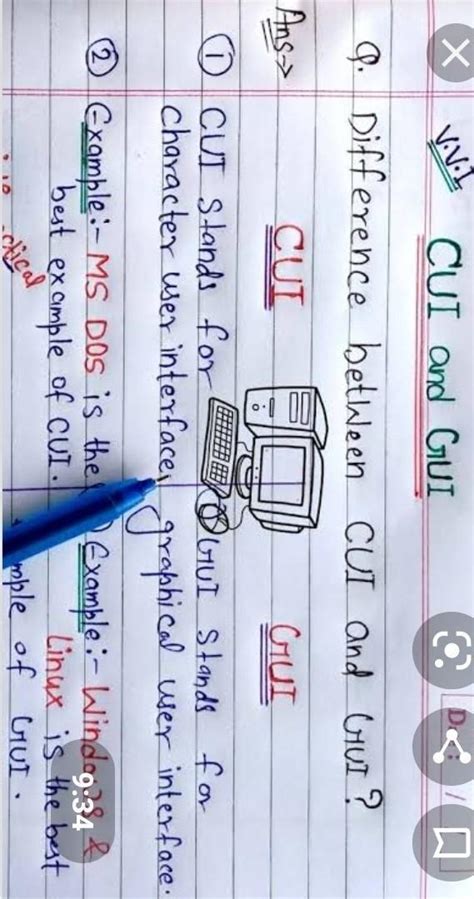 V.V.I CUI and GUI
Q. Difference between CUI and GUI?
Ans→
CUI
① CUI stands for
character user interface.
② Example:- MS DOS is the
best example of CUI.
GUI
GUI stands for
graphical user interface.
Example:- Windows &
Linux is the best
of GUI.
9:34